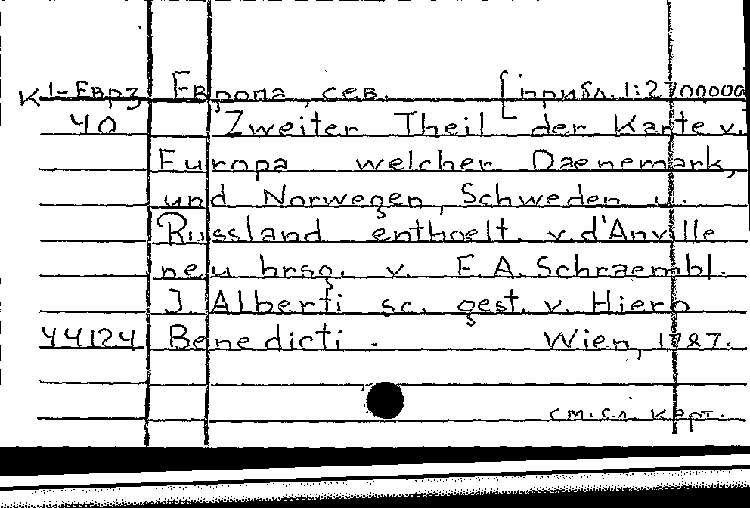 К1-Евр3 Европа, сев. [прибл. 1:2700000
40 Zweiter Theil der Karte v.
Europa welcher Daenemark,
und Norwegen, Schweden u.
Russland enthoelt. v. d'Anville
neu hrsg. v. E.A. Schraembl.
J. Alberti sc. gest. v. Hiero
44124 Benedicti. Wien, 1787.
см. сл. карт.